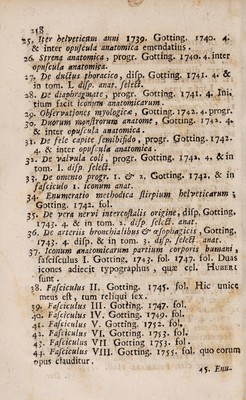 218
25. Iter helveticum anni 1739. Gotting. 1740. 4.
& inter opuscula anatomica emendatius.
26. Strena anatomica, progr. Gotting. 1740. 4. inter
opuscula anatomica.
27. De ductus thoracico, disp. Gotting. 1741. 4. &
in tom. I. disp. anat. select.
28. De diaphragmate, progr. Gotting. 1741. 4. Ini-
tium facit iconum anatomicarum.
29. Observationes myologicæ, Gotting. 1742. 4. progr.
30. Duorum monstrorum anatome, Gotting. 1742. 4.
& inter opuscula anatomica
31. De fele capite semibifido, progr. Gotting. 1742.
4. & inter opuscula anatomica.
32. De valvula coli, progr. Gotting. 1742. 4. & in
tom. I. disp. select.
33. De omento progr. 1. & 2. Gotting. 1742. & in
fasciculo 1. iconum anat.
34. Enumeratio methodica stirpium helveticarum,
Gotting. 1742. fol.
35. De vera nervi intercostalis origine, disp. Gotting.
1743. 4. & in tom. 2. disp. select. anat.
36. De arteriis bronchialibus & œsophagicis, Gotting.
1743. 4. disp. & in tom. 3. disp. select. anat.
37. Iconum anatomicarum partium corporis humani,
fascisculus I. Gotting. 1743. fol. 1747. fol. Duas
icones adiecit typographus, quæ cel. HUBERI
sunt.
38. Fasciculus II. Gotting. 1745. fol. Hic unice
meus est, tum reliqui sex.
39. Fasciculus III. Gotting. 1747. fol.
40. Fasciculus IV. Gotting. 1749. fol.
41. Fasciculus V. Gotting. 1752. fol.
42. Fasciculus VI. Gotting. 1753. fol.
43. Fasciculus VII. Gotting. 1753. fol.
44. Fasciculus VIII. Gotting. 1755. fol. quo eorum
opus clauditur.
45. Enu-